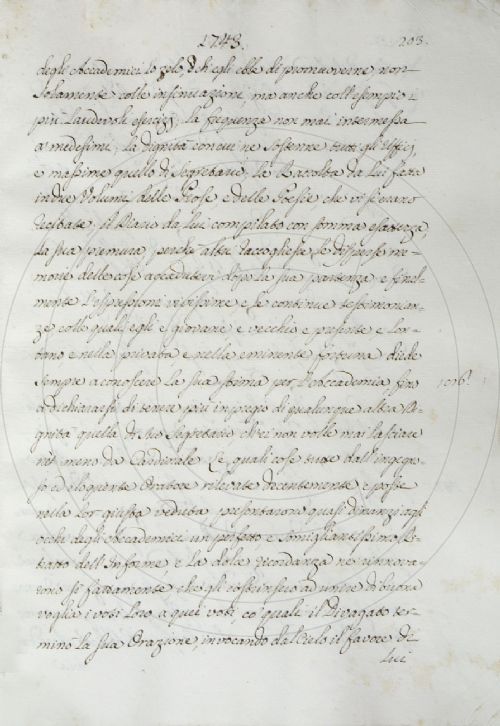 1743. 203.
degli Accademici lo zelo, ch'egli ebbe di promuoverne, non
solamente colle insinuazioni, ma anche coll'esempio i
più lauderoli esercizj; la frequenza non mai intermessa
a' medesimi; la dignità con cui ne sostenne tutti gli Uffizj,
e massime quello di Segretario; la Raccolta da lui fatta
in due Volumi delle Prose e delle Poesie, che vi si erano
recitate; il Diario da lui compilato con somma esattezza,
la sua premura, perché altri raccogliesse le disperse me-
morie delle cose accadutevi dopo la sua partenza; e final-
mente l'espressioni vivissime, e le continue testimonian-
ze colle quali egli e giovane e vecchio e presente e lon-
tano e nella privata e nella eminente fortuna diede
sempre a conoscere la sua stima per l'Accademia fin
a dichiararsi di tenere più in pregio di qualunque altra Di-
gnità quella di suo Segretario ch'ei non volle mai lasciare
nè meno da Cardinale. Le quali cose tutte dall'ingegno-
so ed eloquente Oratore rilevate decentemente e poste
nella lor giusta veduta presentarono quasi dinanzi agli
occhi degli Accademici un perfetto e somigliantissimo Ri-
tratto dell'Informe, e la dolce ricordanza ne rinnova-
rono sì fattamente che gli costrinsero ad unire di buona
voglia i voti loro a quei voti, co' quali il Divagato ter-
minò la sua Orazione, invocando dal Cielo il favore di
lui